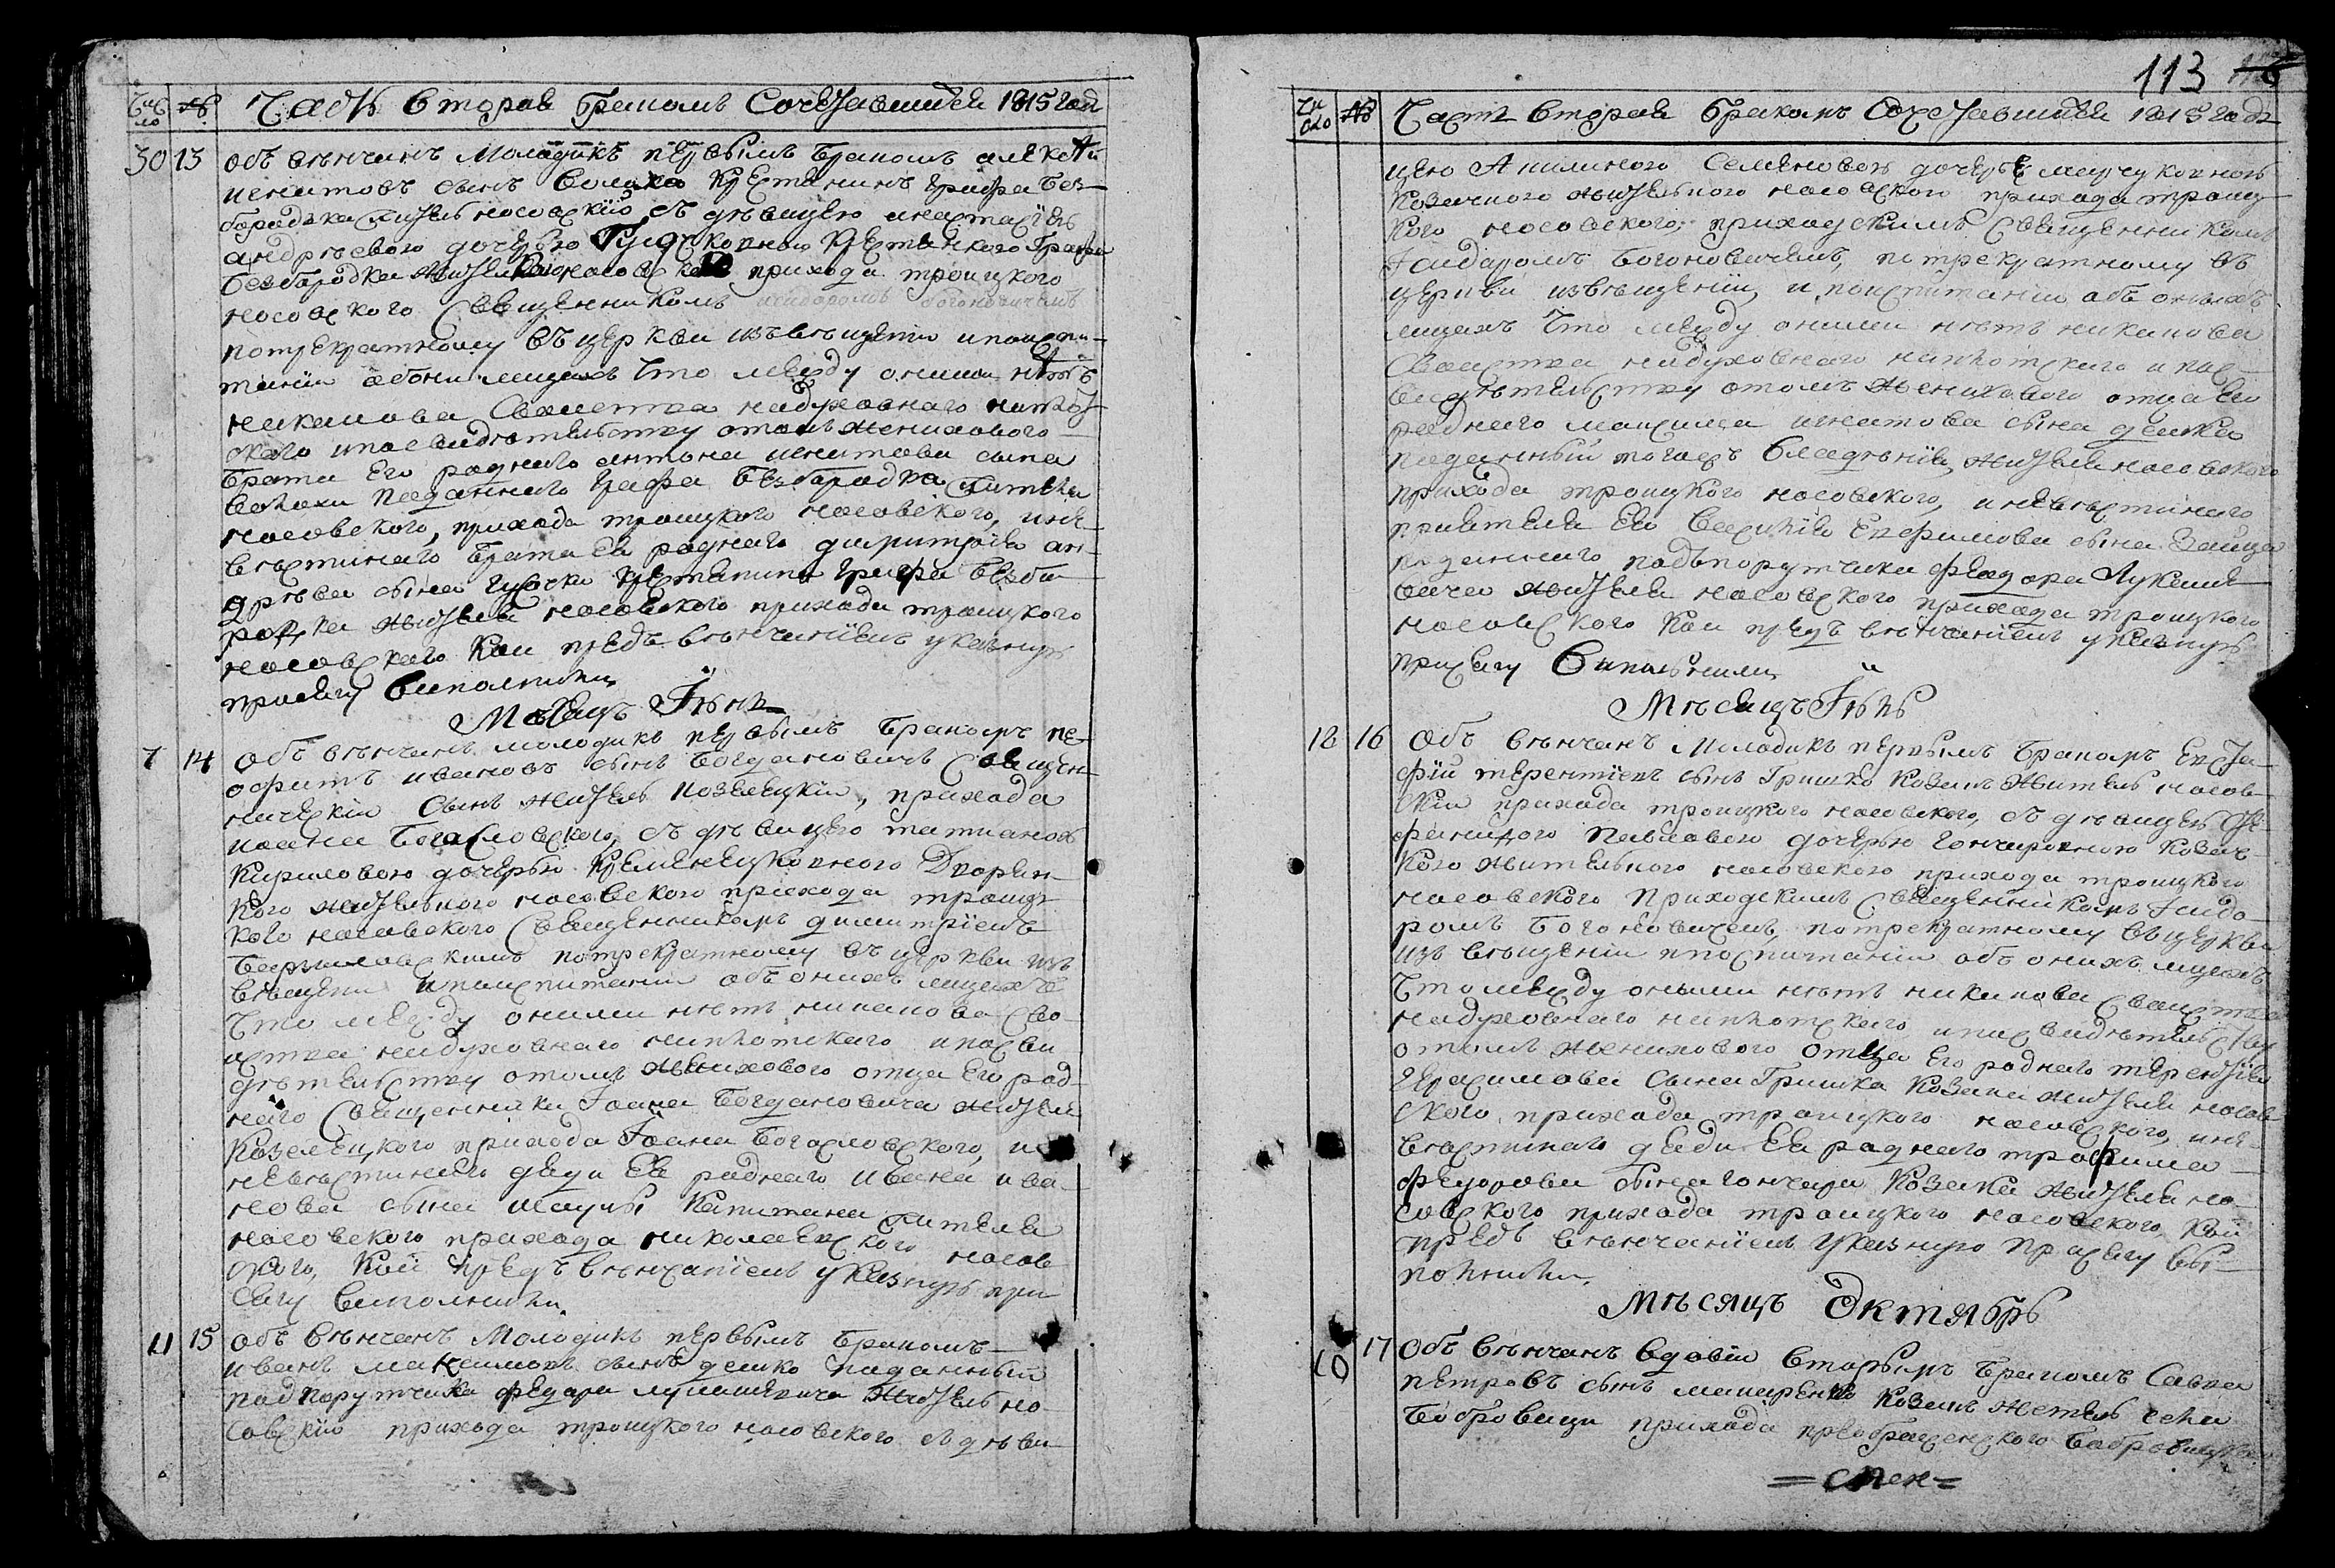 Число № Часть вторая бракомъ Сочетавшихся 1815 года
30 13 объ вѣнчанъ Молодикъ первымъ бракомъ алексѣй
игнатовъ сынъ Волоха крестянинъ графа Без-
бородка житель носовскій, съ дѣвицею анастасіею
андрѣевою дочерью крестянкого графа
Безбородка носовского прихода троицкого
носовского Священникомъ исидоромъ богоновичемъ
потрекратному въ церкви извѣщенію и поиспи-
танію обонихъ лицахъ что между оними нѣтъ
никакова Своиства нидуховнаго ниплот-
ского ипосвидѣтельству отомъ женихового
брата Его роднаго антона игнатова сына
волохи подданнаго графа безбородка жителя
носовского, прихода троицкого носовского, ине-
вѣстинаго брата Ея роднаго димитрія ан-
дрѣева сына крестянина графа безбо
родка жителя носовского прихода троицкого
носовского кои предъ вѣнчаніемъ указную
присягу выполнили
Мѣсяцъ Іюнь
7 14 Объ вѣнчанъ молодикъ первымъ бракомъ не-
офитъ ивановъ сынъ Богдановичъ Священ-
ническій сынъ житель козелецкій, прихода
иоанна Богословского, съ дѣвицею татианою
кириловою дочерью Дворян-
кого жительного носовского прихода троиц-
кого носовского Священникомъ димитріемъ
потрекратному въ церкви изъ
вѣщенію и поиспитаніи объ онихъ лицахъ
что между оними нѣтъ никакова Сво-
иства нидуховнаго ниплотскаго ипосви
дѣтельству отомъ женихового отца Его род-
наго Священника Іоана Богдановича жителя
козелецкого прихода Іоана Богословского, и
невѣстинаго дяди Ея роднаго ивана ива-
нова сына капитана жителя
носовского прихода николаевского носов
ского, кои предъ вѣнчаніемъ указную при
сягу выполнили.
11 15 объ вѣнчанъ Молодикъ первымъ бракомъ
иванъ максимовъ сынъ дешко подданный
подпорутчика федора лукашевича житель но-
совскій прихода троицкого носовского съ дѣви-
113
Число № Часть вторая бракомъ Сочетавшихся 1815 года
цею Акилиною Семеновою дочерью
козачкого жительного носовского прихода троиц-
кого носовского, приходскимъ Священникомъ
Ісидоромъ Богоновичемъ, потрекратному въ
церкви извѣщеніи, и поиспитаніи объ онихъ
лицахъ что между оними нѣтъ никакова
Своиства нидуховнаго ниплотскаго ипос-
видѣтельству отомъ женихового отца его
роднаго максима игнатова сына дешка
подданный того жъ владѣнія, жителя носовского
прихода троицкого носовского, иневѣстинаго
приятеля Ея Василія Ефимова сына Зайца
подданнаго подъпорутчика Федора Лукаше-
вича жителя носовского прихода троицкого
носовского кои предъ вѣнчаніемъ указную
присягу Выполнили
Мѣсяцъ Іюль
18 16 Объ вѣнчанъ Молодикъ первымъ бракомъ Евста-
фій терентіевъ сынъ Гришко козакъ житель носов-
скій прихода троицкого носовского, съ дѣвицею
павловою дочерью гончаровною козач-
кого жительного носовского прихода троицкого
носовского приходскимъ Священникомъ Ісидо-
ромъ Богоновичемъ, потрекратному въ церкви
изъ вѣщеніи ипоиспитаніи объ онихъ лицахъ
что между оными нѣтъ никакова Своиства
нидуховнаго ниплотского ипосвидѣтельству
отомъ женихового отца Его роднаго терентія
герасимова сына Гришка козака жителя носов-
ского прихода троицкого носовского, ине-
вѣстинаго дяди Ея роднаго трофима
Федорова сына гончара козака жителя но-
совского прихода троицкого носовского, кои
предъ вѣнчаніемъ указную присягу вы-
полнили.
Мѣсяцъ Октябрь
10 17 Объ вѣнчанъ вдовій вторымъ бракомъ Савва
петровъ сынъ макаренко козакъ житель села
Бобровици прихода преображенского бобровицкаго